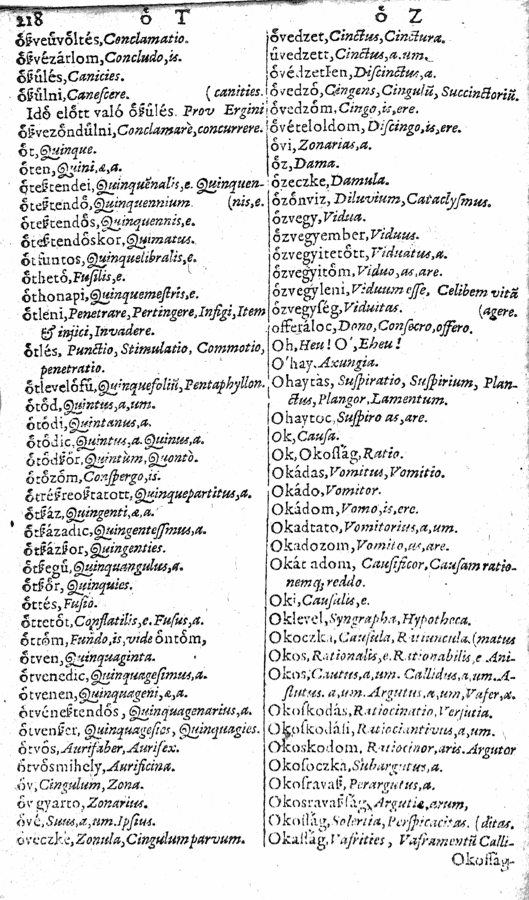 218 ő T
őkveűvőltés, Conclamatio.
őkvézárlom, Concludo, is.
őkűlés, Canicies.
őkűlni, Canescere. (canities.
Idő előtt való őkűlés. Prov Ergini
őkvezőndűlni, Conclamarè, concurrere.
őt, Quinque.
őten, Quini, æ, a.
őteſtendei, Quinquēnalis, e. Quinquen-
őteſtendő, Quinquennium (nis, e.
őteſtendős, Quinquennis, e.
őteſtendőskor, Quimatus.
őtfuntos, Quinquelibralis, e.
őthető, Fusilis, e.
őthonapi, Quinquemestris, e.
őtleni, Penetrare, Pertingere, Infigi, Item
& injici, Invadere.
őtlés, Punctio, Stimulatio, Commotio,
penetratio.
őtlevelőfű, Quinquefoliū, Pentaphyllon.
őtőd, Quintus, a, um.
őtődi, Quintanus, a.
őtődic, Quintus, a. Quinus, a.
őtődſőr, Quintùm, Quontò.
őtőzőm, Conspergo, is.
őtréſreoſtatott, Quinquepartitus, a.
őtſáz, Quingenti, æ, a.
őtſázadic, Quingentesimus, a.
őtſázſor, Quingenties.
őtſegű, Quinquangulus, a.
őtſőr, Quinquies.
őttés, Fusio.
őttetőt, Conflatilis, e. Fusus, a.
őttőm, Fundo, is, vide őntőm,
őtven, Quinquaginta.
őtvenedic, Quinquagesimus, a.
őtvenen, Quinquageni, æ, a.
őtvéneſtendős, Quinquagenarius, a.
őtvenſer, Quinquagesies, Quinquagies.
őtvős, Aurifaber, Aurifex.
őtvősmihely, Aurificina.
őv, Cingulum, Zona.
őv gyarto, Zonarius.
ővé, Suus, a, um. Ipsius.
őveczke, Zonula, Cingulum parvum.
ő Z
ővedzet, Cinctus, Cinctura.
űvedzett, Cinctus, a, um.
ővédzetlen, Discinctus, a.
ővedző, Cingens, Cingulū, Succinctoriū.
ővedzőm, Cingo, is, ere.
ővételoldom, Discingo, is, ere.
ővi, Zonarias, a.
őz, Dama.
őzeczke, Damula.
őzőnviz, Diluvium, Cataclysmus.
őzvegy, Vidua.
őzvegyember, Viduus.
őzvegyitetőtt, Viduatus, a.
őzvegyitőm, Viduo, as, are.
őzvegyleni, Viduum esse, Celibem vitā
őzvegység, Viduitas. (agere.
offeráloc, Dono, Consecro, offero.
Oh, Heu! O', Eheu!
O'hay. Axungia.
Ohaytas, Suspiratio, Suspirium, Plan-
ctus, Plangor, Lamentum.
Ohaytoc, Suspiro as, are.
Ok, Causa.
Ok, Okosság, Ratio.
Okádas, Vomitus, Vomitio.
Okádo, Vomitor.
Okádom, Vomo, is, ere.
Okadtato, Vomitorius, a, um.
Okadozom, Vomito, as, are.
Okát adom, Causificor, Causam ratio-
nemq; reddo.
Oki, Causalis, e.
Oklevel, Syngrapha, Hypotheca.
Okoczka, Causula, Ratiuncula. (matus
Okos, Rationalis, e. Rationabilis, e Ani-
Okos, Cautus, a, um. Callidus, a, um. A-
stutus. a, um. Argutus, a, um, Vafer, a.
Okoskodás, Ratiocinatio, Versutia.
Okoskodási, Ratiociantivus, a, um.
Okoskodom, Ratiocinor, aris. Argutor
Okosoczka, Subargutus, a.
Okosravaſ, Perargutus, a.
Okosravaſság, Argutiæ, arum,
Okosság, Solertia, Perspicacitas. (ditas.
Okasság, Vafrities, Vaframentū Calli-
Okossag-